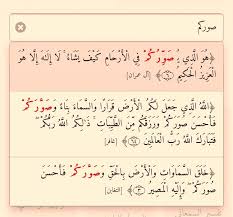 صوركم
﴿هُوَ الَّذِي يُصَوِّرُكُمْ فِي الْأَرْحَامِ كَيْفَ يَشَاءُ ۚ لَا إِلَٰهَ إِلَّا هُوَ
الْعَزِيزُ الْحَكِيمُ ٦﴾ [آل عمران]
﴿اللَّهُ الَّذِي جَعَلَ لَكُمُ الْأَرْضَ قَرَارًا وَالسَّمَاءَ بِنَاءً وَصَوَّرَكُمْ
فَأَحْسَنَ صُوَرَكُمْ وَرَزَقَكُم مِّنَ الطَّيِّبَاتِ ۚ ذَٰلِكُمُ اللَّهُ رَبُّكُمْ ۖ
فَتَبَارَكَ اللَّهُ رَبُّ الْعَالَمِينَ ٦٤﴾ [غافر]
﴿خَلَقَ السَّمَاوَاتِ وَالْأَرْضَ بِالْحَقِّ وَصَوَّرَكُمْ فَأَحْسَنَ
صُوَرَكُمْ ۖ وَإِلَيْهِ الْمَصِيرُ ٣﴾ [التغابن]